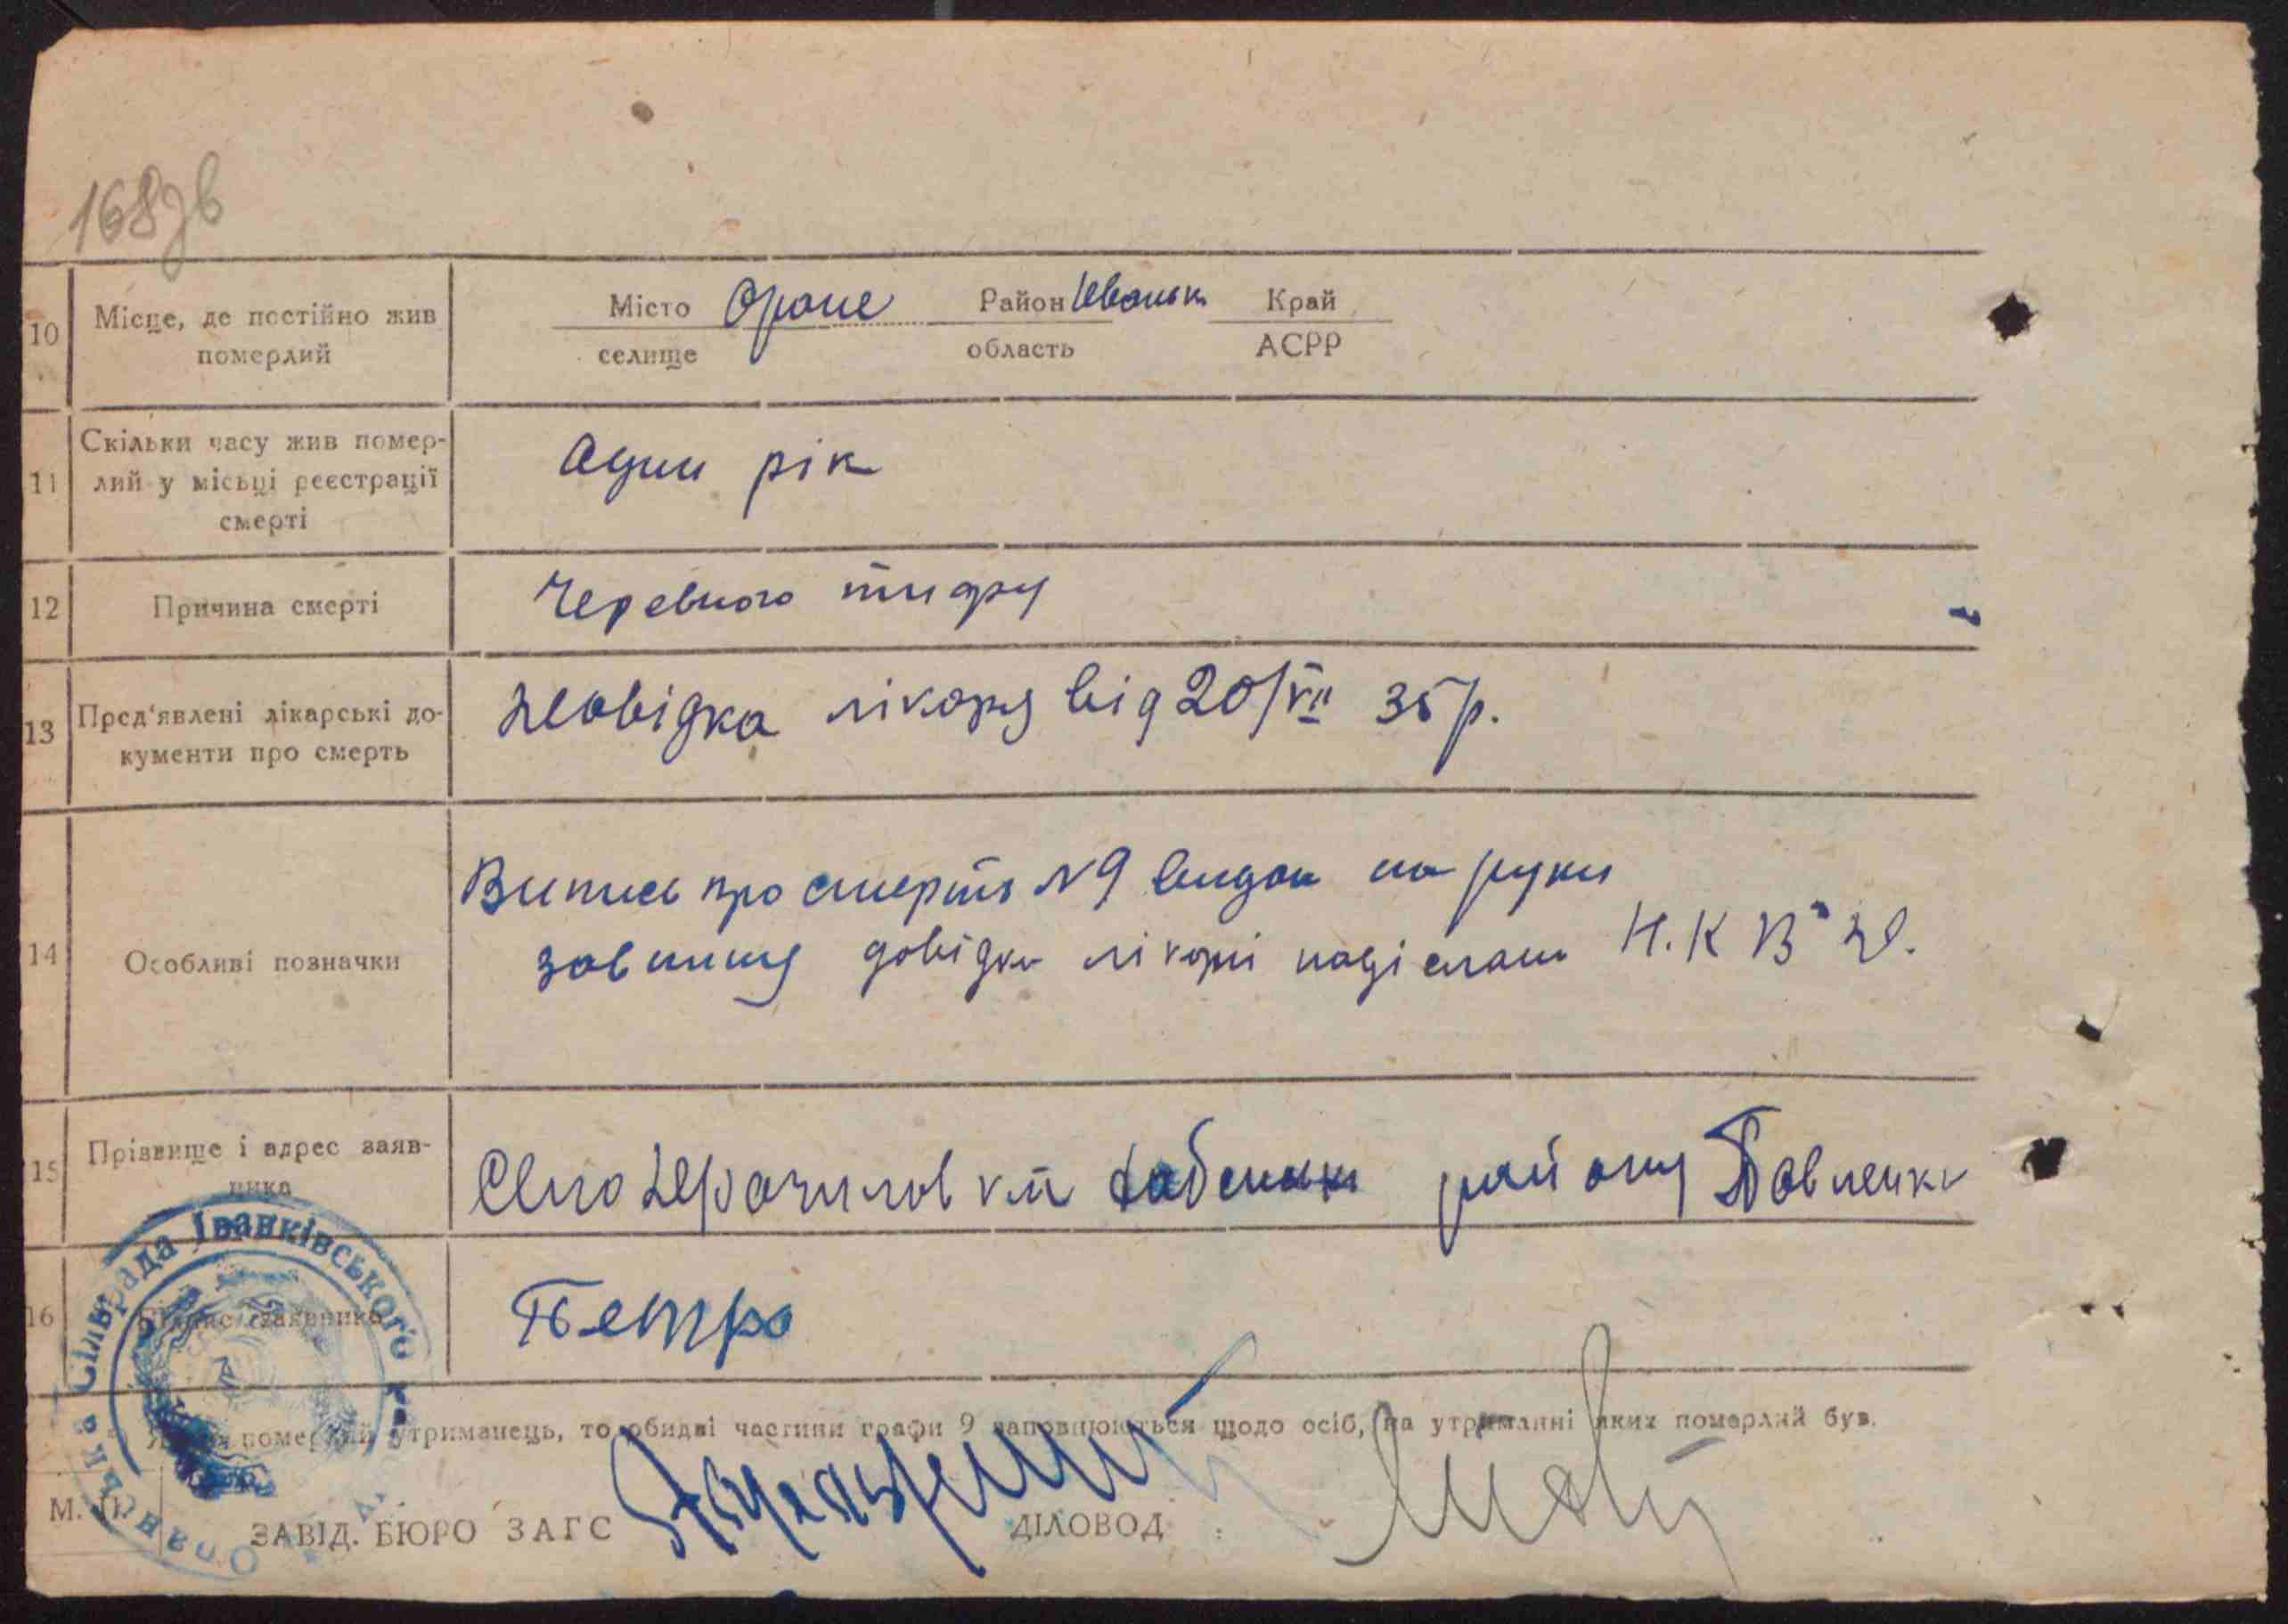 168зв
10 Місце, де постійно жив померлий
Місто Оране Район Іваньк Край
селище область АСРР
11 Скільки часу жив помер-
лий у місьці реєстрації
смерті
Один рік
12 Причина смерті
Черевного тифу
13 Пред'явлені лікарські до-
кументи про смерть
Довідка лікаря від 20/VII 35 р.
14 Особливі позначки
Випись про смерть №9 видан на руки
довідка надіслан Н.К В Д.
15 Прізвище і адрес заяв-
ника
Село району Павленко
16 Підпис заявника
Петро
померлий утриманець, то обидві частини графи 9 заповнюються щодо осіб, на утриманні яких померлий був.
М. П.
ЗАВІД. БЮРО ЗАГС
ДІЛОВОД
Оранська Сільрада Іванківського